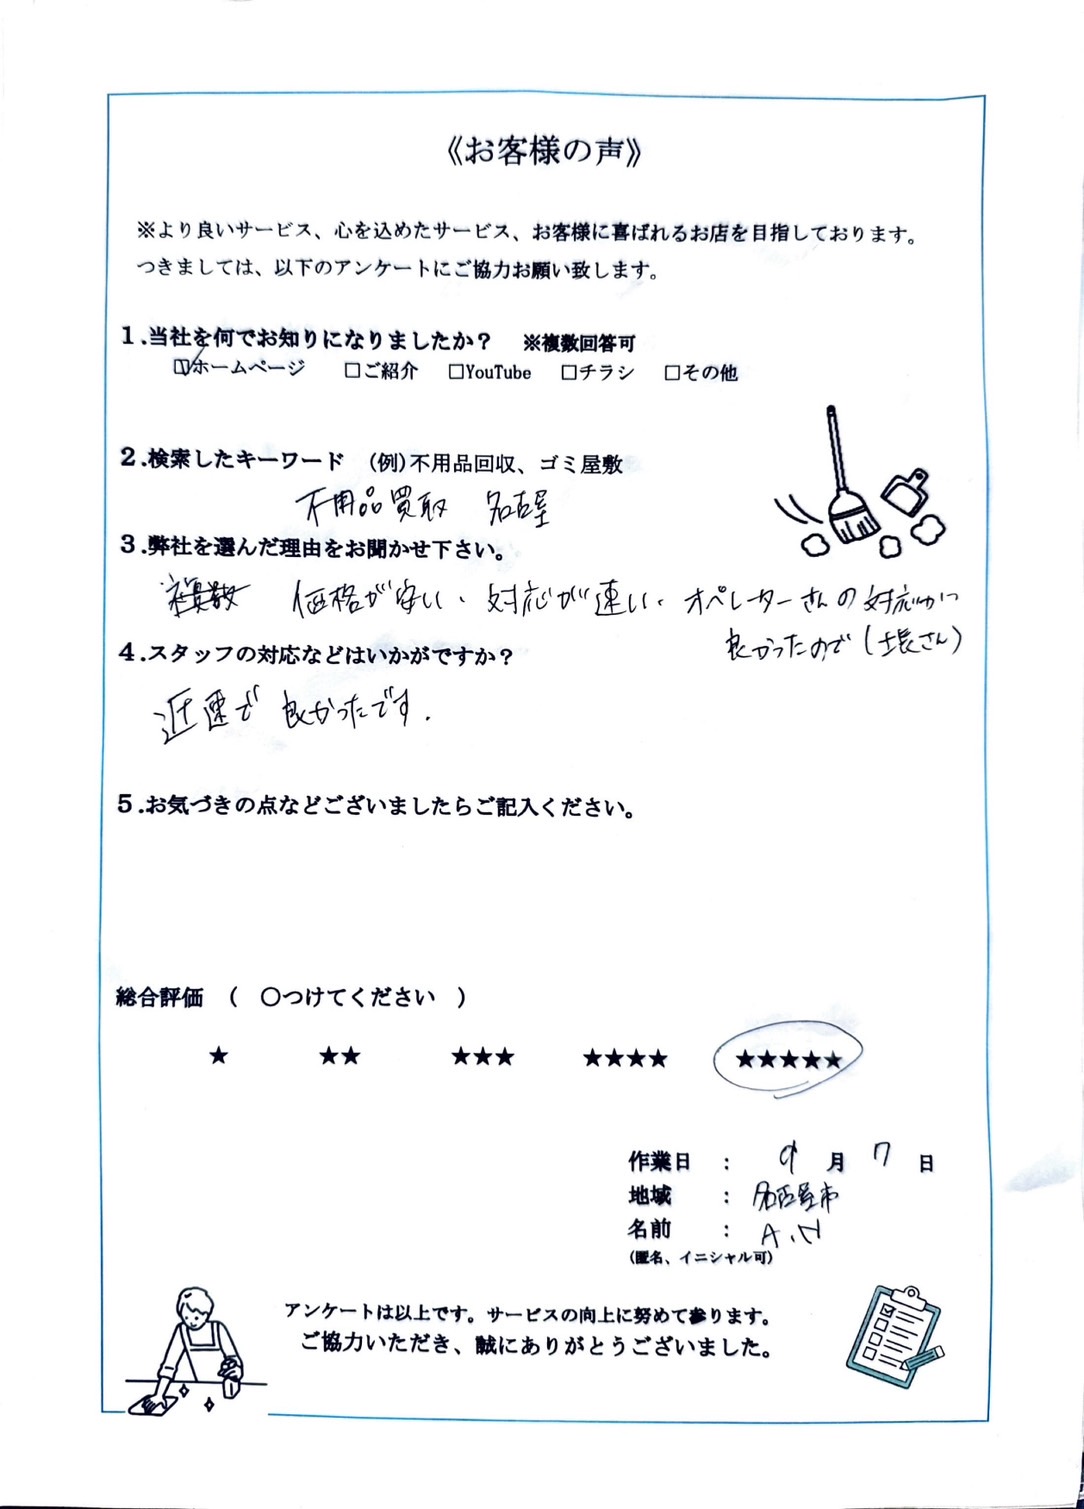 《お客様の声》
※より良いサービス、心を込めたサービス、お客様に喜ばれるお店を目指しております。
つきましては、以下のアンケートにご協力お願い致します。
1.当社を何でお知りになりましたか? ※複数回答可
☑ホームページ □ご紹介 □YouTube □チラシ □その他
2.検索したキーワード (例)不用品回収、ゴミ屋敷
不用品買取 名古屋
3.弊社を選んだ理由をお聞かせ下さい。
価格が安い、対応が速い、オペレーターさんの対応が
良かったので(さん)
4.スタッフの対応などはいかがですか?
迅速で良かったです.
5.お気づきの点などございましたらご記入ください。
総合評価 ( ○つけてください )
★ ★★ ★★★ ★★★★ ★★★★★
作業日 : 9 月 7 日
地域 : 名古屋市
名前 : A.N
(匿名、イニシャル可)
アンケートは以上です。サービスの向上に努めて参ります。
ご協力いただき、誠にありがとうございました。